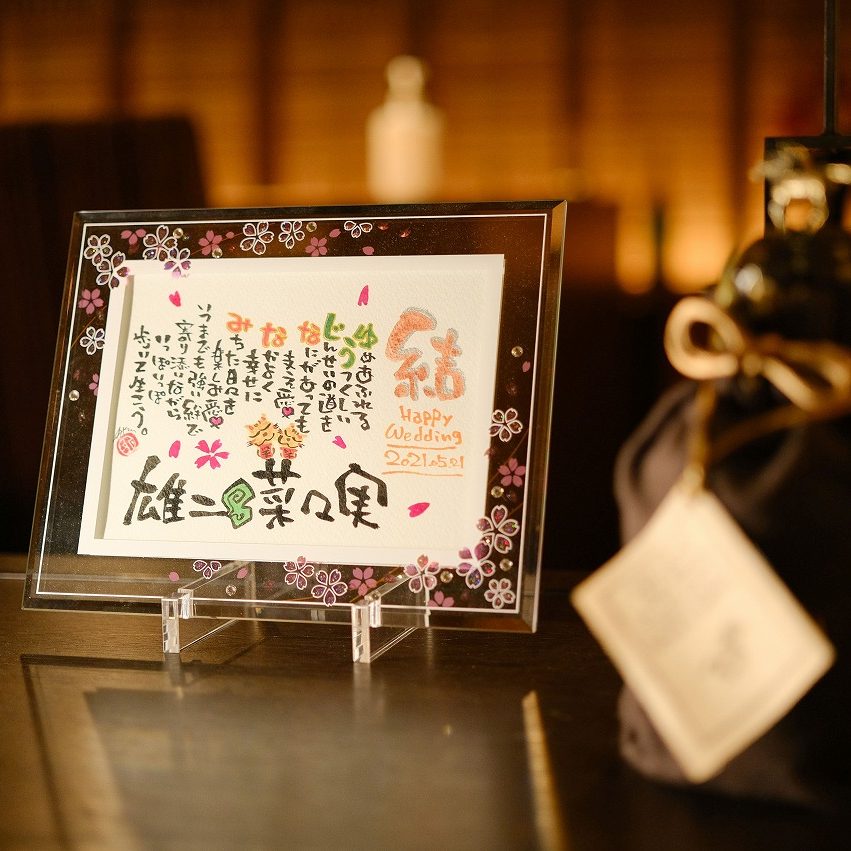 結
Happy
Wedding
2021.05.21
ゆめあふれる
うつくしい
じんせいの道を
なにがあっても
支え愛
なかよく
幸せに
みちた日々を
楽しみ愛
いつまでも強い絆で
寄り添いながら
いっぽいっぽ
歩いて生こう。
雄二
菜々実